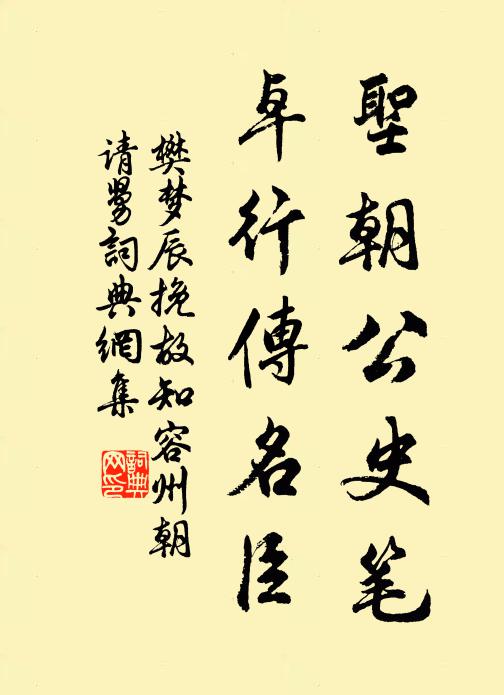 聖朝公史笔
卓行傳名臣
樊梦辰挽故知容州朝
请曼詞典網集
詞典网印